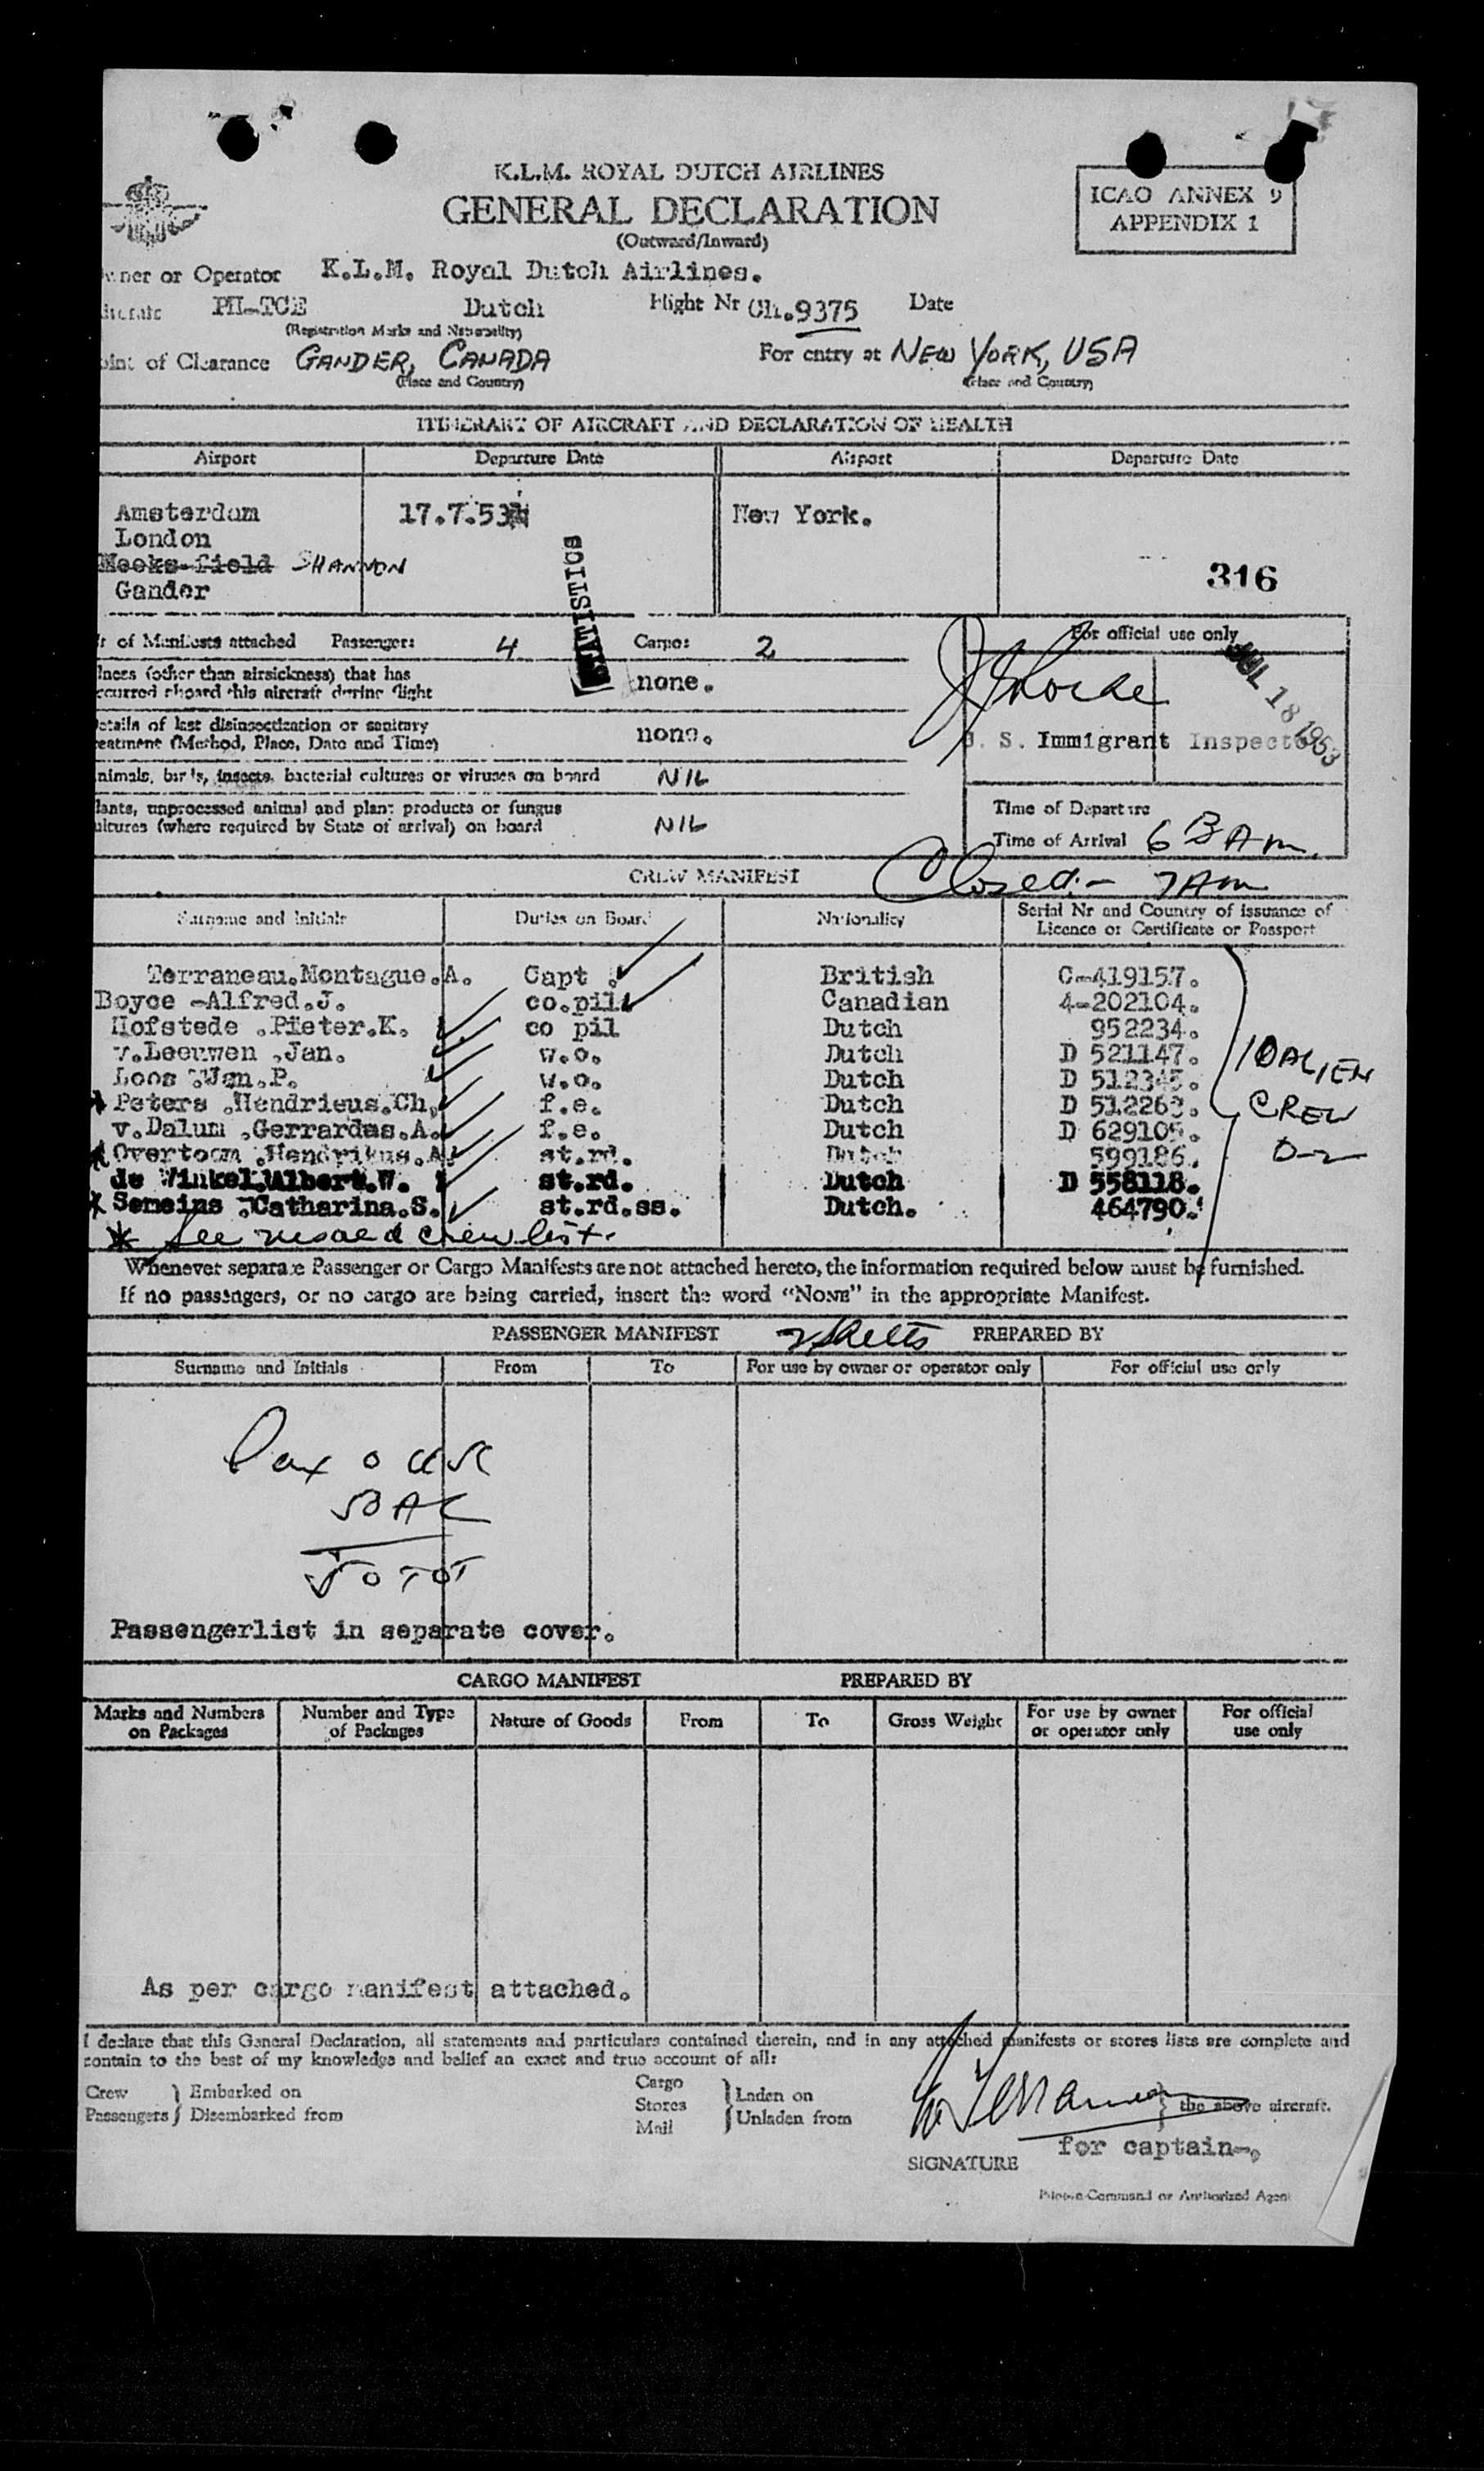 K.L.M. ROYAL DUTCH AIRLINES
GENERAL DECLARATION
(Outward/Inward)
ICAO ANNEX 9
APPENDIX 1
wner or Operator K.L.M. Royal Dutch Airlines.
PH-TCE Dutch Flight Nr Ch.9375 Date
(Registration Marks and Nationality)
oint of Clearance GANDER, CANADA For entry at NEW YORK, USA
(Place and Country) (Place and Country)
ITINERARY OF AIRCRAFT AND DECLARATION OF HEALTH
Airport Departure Date Airport Departure Date
Amsterdam 17.7.53 New York.
London
Meeks-field SHANNON
Gander
316
STATISTICS
r of Manifests attached Passengers: 4 Cargo: 2
For official use only
JUL 18 1953
lness (other than airsickness) that has
ccurred aboard this aircraft during flight none.
etails of last disinsectization or sanitary
reatment (Method, Place, Date and Time) none.
U. S. Immigrant Inspector
nimals, birds, insects, bacterial cultures or viruses on board NIL
lants, unprocessed animal and plant products or fungus
ultures (where required by State of arrival) on board NIL
Time of Departure
Time of Arrival 6 Am.
Closed:- 7Am
CREW MANIFEST
Surname and Initials Duties on Board Nationality Serial Nr and Country of issuance of
Licence or Certificate or Passport
Terraneau.Montague.A. Capt . British C-419157.
Boyce -Alfred.J. co.pil. Canadian 4-202104.
Hofstede .Pieter.K. co pil Dutch 952234.
v.Leeuwen .Jan. w.o. Dutch D 521147.
Loos .Jan.P. w.o. Dutch D 512345.
* Peters .Hendricus.Ch. f.e. Dutch D 512263.
v.Dalum .Gerrardus.A. f.e. Dutch D 629105.
* Overtoom .Hendrikus.A. st.rd. Dutch 599186.
de Winkel.Albert.W. st.rd. Dutch D 558118.
* Semeins .Catharina.S. st.rd.ss. Dutch. 464790.
10 ALIEN
CREW
D-2
* See crew list.
Whenever separate Passenger or Cargo Manifests are not attached hereto, the information required below must be furnished.
If no passengers, or no cargo are being carried, insert the word "NONE" in the appropriate Manifest.
PASSENGER MANIFEST PREPARED BY
Surname and Initials From To For use by owner or operator only For official use only
Pax
Passengerlist in separate cover.
CARGO MANIFEST PREPARED BY
Marks and Numbers on Packages Number and Type of Packages Nature of Goods From To Gross Weight For use by owner or operator only For official use only
As per cargo manifest attached.
I declare that this General Declaration, all statements and particulars contained therein, and in any attached manifests or stores lists are complete and
contain to the best of my knowledge and belief an exact and true account of all:
Crew Embarked on Cargo Laden on
Passengers Disembarked from Stores Unladen from the above aircraft.
Mail
SIGNATURE for captain-.
Pilot-in-Command or Authorized Agent